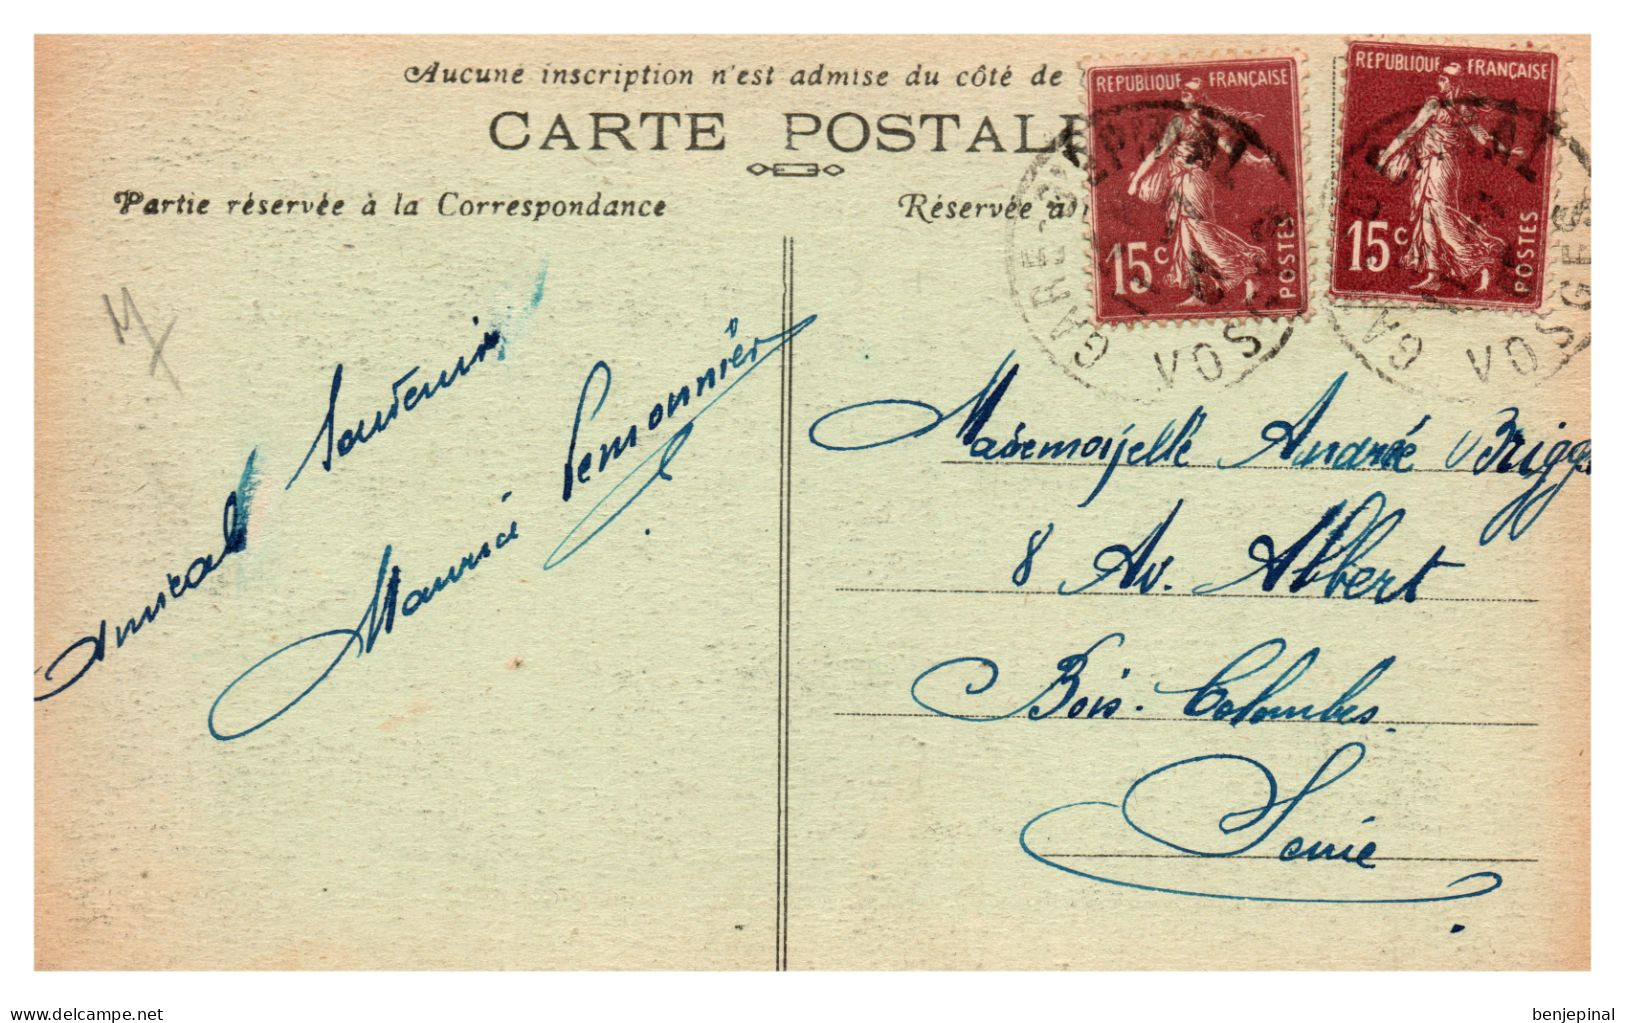 Aucune inscription n'est admise du côté de
CARTE POSTALE
Partie réservée à la Correspondance
Réservée à
RÉPUBLIQUE FRANÇAISE
15c
POSTES
RÉPUBLIQUE FRANÇAISE
15c
POSTES
EPINAL
GARE
VOSGES
EPINAL
GARE
VOSGES
Amical Souvenir
Maurice Lemonnier
Mademoiselle Andrée Briggs
8 Av. Albert
Bois-Colombes
Seine
delcampe.net
benjepinal